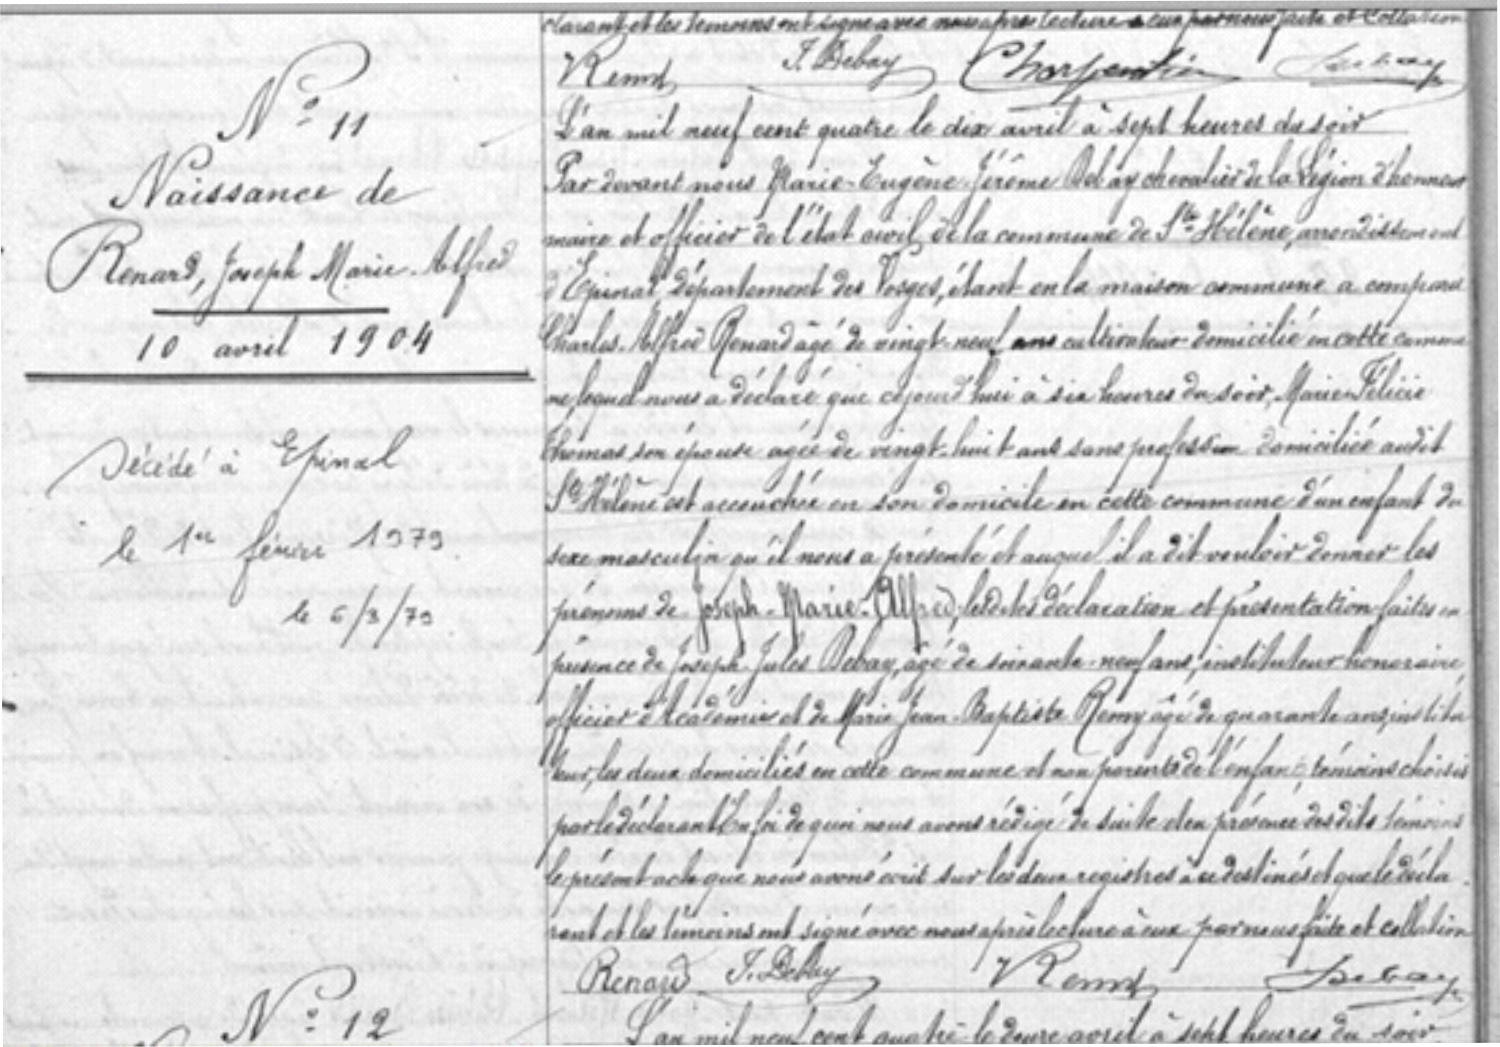 clarant et les témoins ont signé avec nous après lecture à eux par nous faite et collation
Remy J. Debay Charpentier Debay
N° 11
Naissance de
Renard, Joseph Marie Alfred
10 avril 1904
Décédé à Epinal
le 1er février 1979
le 6/3/79
L'an mil neuf cent quatre le dix avril à sept heures du soir
Par devant nous Marie-Eugène-Jérôme Debay chevalier de la Légion d'honneur
maire et officier de l'état civil de la commune de Ste Hélène, arrondissement
d'Epinal département des Vosges, étant en la maison commune a comparu
Charles-Alfred Renard âgé de vingt-neuf ans cultivateur domicilié en cette commu
ne, lequel nous a déclaré que cejourd'hui à six heures du soir, Marie-Félicie
Thomas son épouse âgée de vingt-huit ans sans profession domiciliée audit
Ste Hélène est accouchée en son domicile en cette commune d'un enfant du
sexe masculin qu'il nous a présenté et auquel il a dit vouloir donner les
prénoms de Joseph-Marie-Alfred, lesdites déclaration et présentation faites en
présence de Joseph-Jules Debay, âgé de soixante-neuf ans, instituteur honoraire
officier d'Académie et de Marie Jean-Baptiste Remy âgé de quarante ans, institu
teur, les deux domiciliés en cette commune et non parents de l'enfant témoins choisis
par le déclarant En foi de quoi nous avons rédigé de suite et en présence desdits témoins
le présent acte que nous avons écrit sur les deux registres à ce destinés et que le décla
rant et les témoins ont signé avec nous après lecture à eux par nous faite et collation
Renard J. Debay Remy Debay
N° 12
L'an mil neuf cent quatre le douze avril à sept heures du soir